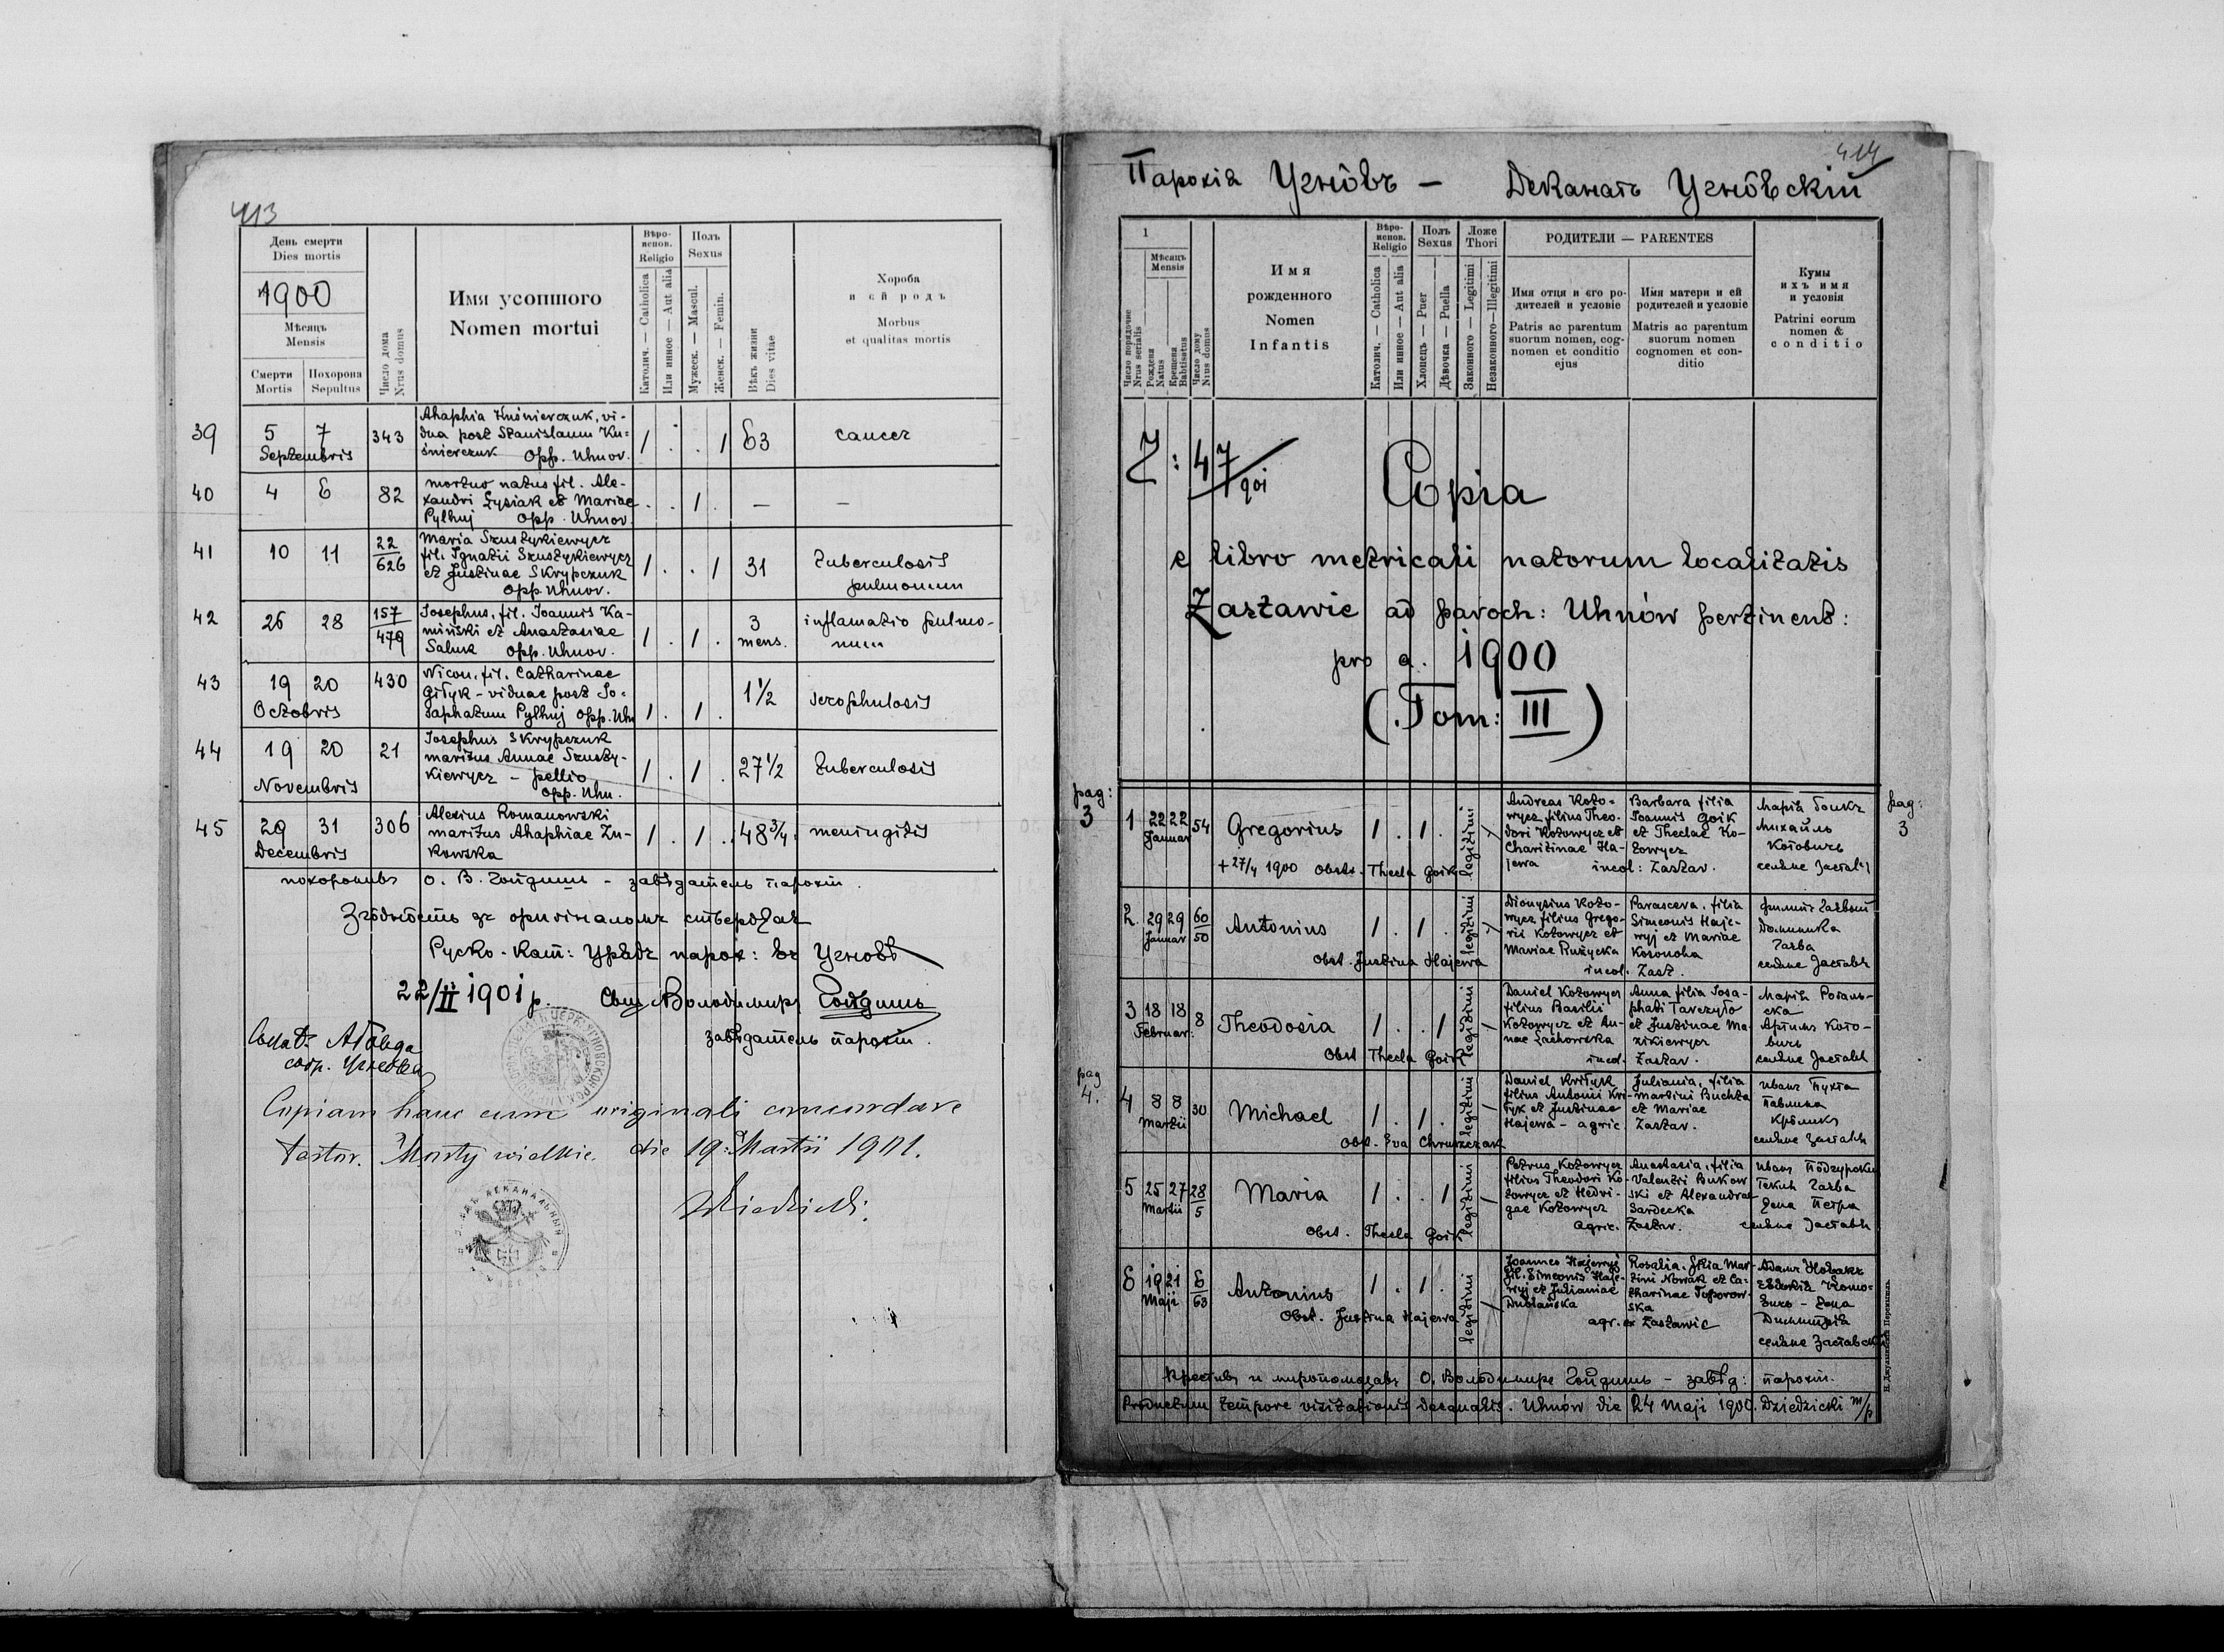 413
День смерти
Dies mortis
1900
Мѣсяць
Mensis
Смерти
Mortis
Похорона
Sepultus
Число дома
Nrus domus
Имя усопшого
Nomen mortui
Вѣро-
испов.
Religio
Католич. — Catholica
Или инное — Aut alia
Полъ
Sexus
Мужеск. — Mascul.
Женск. — Femin.
Вѣкъ жизни
Dies vitae
Хороба
и єй родъ
Morbus
et qualitas mortis
39 5 7 Septembris 343
Ahaphia Kuśnierczuk, vi-
dua post Stanislaum Ku-
śnierczuk Opp. Uhnov.
1 . . 1 63 cancer
40 4 6 82
mortuo natus fil. Ale-
xandri Łysiak et Mariae
Pylhuj Opp. Uhnov.
. . 1 . — —
41 10 11 22/626
Maria Szustykiewycz
fil. Ignatii Szustykiewycz
et Justinae Skrypczuk
Opp. Uhnov.
1 . . 1 31 tuberculosis
pulmonum
42 26 28 157/479
Josephus, fil. Joannis Ka-
miński et Anastasiae
Saluk Opp. Uhnov.
1 . 1 . 3 mens. inflamatio pulmo-
num
43 19 20 Octobris 430
Nicon, fil. Catharinae
Gityk - viduae post Jo-
saphatum Pylhuj Opp. Uhn
1 . 1 . 1 1/2 scrophulosis
44 19 20 Novembris 21
Josephus Skrypczuk
maritus Annae Szusty-
kiewycz - pellio
Opp. Uhn.
1 . 1 . 27 1/2 tuberculosis
45 29 31 Decembris 306
Alexius Romanowski
maritus Ahaphiae Żu-
kowska
1 . 1 . 48 3/4 meningitis
похоронивъ о. В. Гойдишь - завѣдатель парохіи.
Згôдность зъ оригіналомъ стверджає
Руско-кат: Урядъ парох: въ Угновѣ
22/II 1901 р. Свщ. Володимиръ Гойдишь
завѣдатель парохіи.
Copiam hanc cum originali concordare
testor. Mosty wielkie die 19. Martii 1901.
414
Парохія Угнôвъ — Деканатъ Угнôвскій
1
Число порядочне
Nrus serialis
Мѣсяць
Mensis
Рожденя
Natus
Крещеня
Babtisatus
Число дому
Nrus domus
Имя
рожденного
Nomen
Infantis
Вѣро-
испов.
Religio
Католич. — Catholica
Или инное — Aut alia
Полъ
Sexus
Хлопець — Puer
Дѣвочка — Puella
Ложе
Thori
Законного — Legitimi
Незаконного — Illegitimi
РОДИТЕЛИ — PARENTES
Имя отця и єго ро-
дителей и условіє
Patris ac parentum
suorum nomen, cog-
nomen et conditio
ejus
Имя матери и єй
родителей и условіє
Matris ac parentum
suorum nomen
cognomen et con-
ditio
Кумы
ихъ имя
и условія
Patrini eorum
nomen &
conditio
Z: 47/901
Copia
e libro metricali natorum localitatis
Zastawie ad paroch: Uhnów pertinent:
pro a. 1900
(Tom: III)
pag: 3
1 22 22 Januar 54 Gregorius 1 . 1 . legitimi
Andreas Koto-
wycz filius Theo-
dori Kotowycz et
Charitinae Ha-
jewa
Barbara filia
Joannis Goik
et Theclae Ko-
towycz
incol: Zastav.
Марія Гоикъ
Михайль
Котовичь
+ 27/4 1900 Obst. Thecla Goik
pag: 3
2. 29 29 Januar 60/50 Antonius 1 . 1 . legitimi
Dionysius Koto-
wycz filius Grego-
rii Kotowycz et
Mariae Rużycka
Parasceva, filia
Simeonis Haje-
wyj et Mariae
Kosonoha
incol. Zast.
Obst. Justina Hajewa
3 18 18 Februar: 8 Theodosia 1 . . 1 legitimi
Daniel Kotowycz
filius Basilii
Kotowycz et An-
nae Lachowska
Anna filia Josa-
phati Tarczyło
et Justinae Ma-
zikiewycz
incol. Zastav.
Obst Thecla Goik
pag 4.
4 8 8 Martii 30 Michael 1 . 1 . legitimi
Daniel Krityk
filius Antonii Kri-
tyk et Justinae
Hajewa - agric.
Juliania, filia
Martini Buchta
et Mariae
Zastav.
Иванъ Пухта
Павлина
Obst. Eva Chruszczak
5 25 27 Martii 28/5 Maria 1 . . 1 legitimi
Petrus Kotowycz
filius Theodori Ko-
towycz et Hedvi-
gae Kotowycz
agric.
Anastasia, filia
Valentii Bukow-
ski et Alexandrae
Sardecka
Zastav.
Жена Петра
Obst. Thecla Goik
6 19 21 Maji 6/63 Antonius 1 . 1 . legitimi
Joannes Hajewyj
fil. Simeonis Haje-
wyj et Julianiae
Dublańska
Rosalia, filia Mar-
tini Nowak et Ca-
tharinae Toporow-
ska
agr. ex Zastawie
Адамъ Новакъ
Жена
Димитрія
Obst. Justina Hajewa
Крестивъ и миропомазавъ О. Володимиръ Гойдишь - завѣд: парохіи.
Productum tempore visitationis decanalis. Uhnów die 24 Maji 1900. Dziedzicki m/p